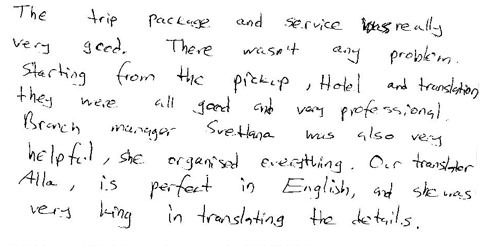 The trip package and service was really
very good. There wasn't any problem.
Starting from the pickup, Hotel and translation
they were all good and very professional.
Branch manager Svetlana was also very
helpful, she organised everything. Our translator
Alla, is perfect in English, and she was
very king in translating the details.